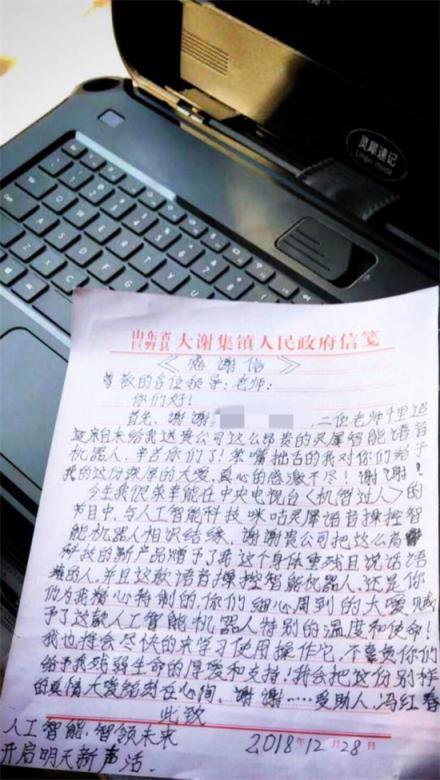 灵犀速记
山东省
巨野县
大谢集镇人民政府信笺
《感谢信》
尊敬的各位领导:老师:
你们好!
首先,谢谢 ,二位老师千里迢
迢亲自来给我送贵公司这么昂贵的灵犀智能语音
机器人,辛苦你们了!笨嘴拙舌的我对你们给予
我的这份深厚的大爱,真心的感激不尽!谢谢!
今年我很荣幸能在中央电视台《机智过人》的
节目中,与人工智能科技咪咕灵犀语音操控智
能机器人相识结缘,谢谢贵公司把这么高
科技的新产品赠予了我这个身体重残且说话语
的人,并且这款语音操控智能机器人,还是你
们为我精心特制的,你们细心周到的大爱,赋
予了这款人工智能机器人特别的温度和使命!
我也将会尽快的来学习使用操作它,不辜负你们
给予我残弱生命的厚爱和支持!我会把这份别样
的真情大爱铭刻在心间,谢谢……受助人:冯红春
此致
人工智能,智领未来
开启明天新声活.
2018年12月28日